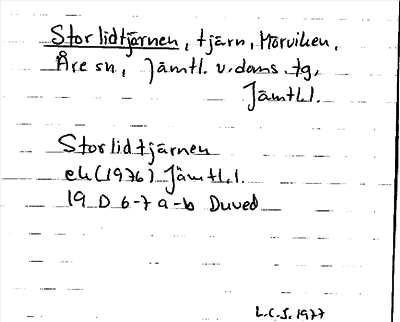 Storlidtjärnen, tjärn, Mörviken,
Åre sn, Jämtl. v. doms. tg,
Jämtl.l.
Storlidtjärnen
ek (1976) Jämtl.l.
19 D 6-7 a-b Duved
L.C.S. 1977